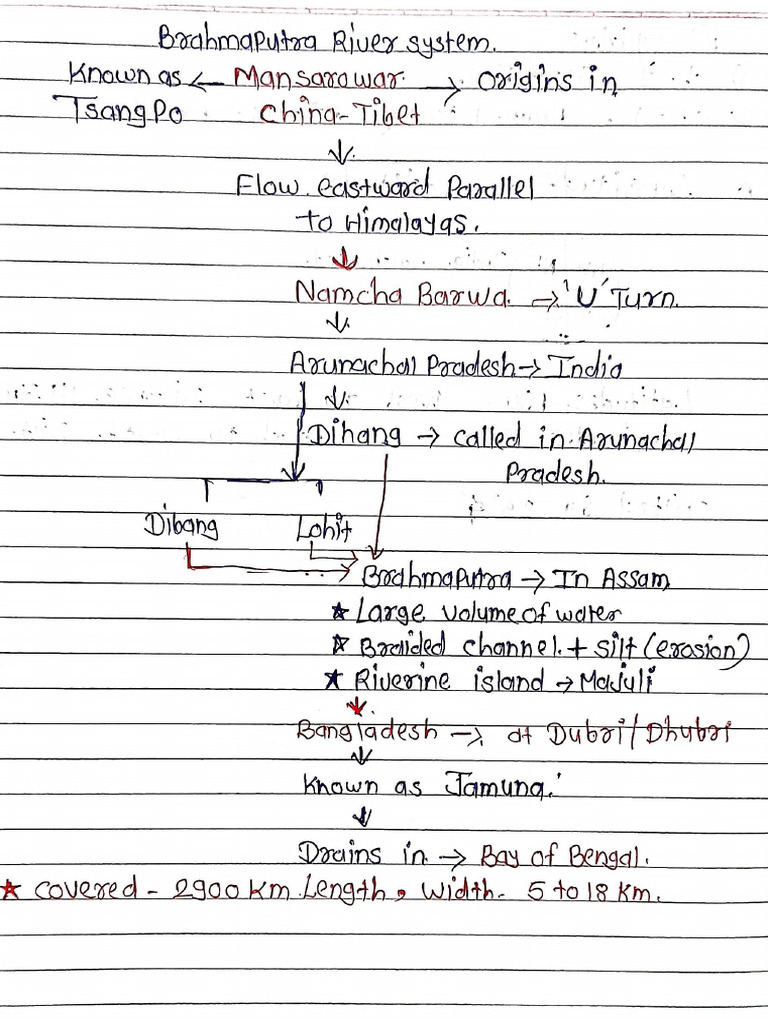 BrahmaPutra River system.
Known as ← Mansarowar → origins in
TsangPo China-Tibet
↓
Flow eastward Parallel
to Himalayas.
↓
Namcha Barwa. → 'U' Turn.
↓
Arunachal Pradesh → India
↓
Dihang → called in Arunachal
Pradesh.
Dibang Lohit
BrahmaPutra → In Assam
★ Large volume of water
★ Braided channel + silt (erosion)
★ Riverine island → Majuli
↓
Bangladesh → at Dubri/Dhubri
↓
Known as Jamuna.
↓
Drains in → Bay of Bengal.
★ covered - 2900 Km Length, width - 5 to 18 Km.